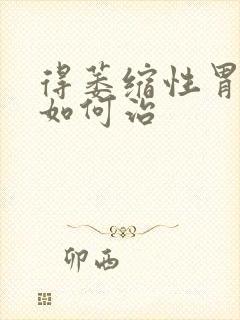 得萎缩性胃
如何治
卯西